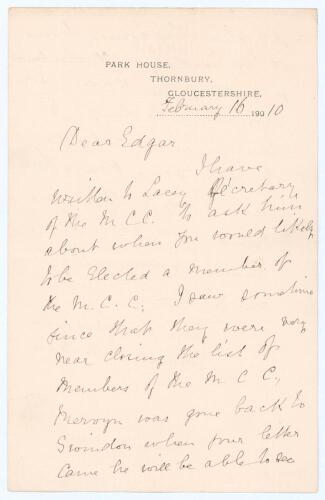 PARK HOUSE,
THORNBURY,
GLOUCESTERSHIRE.
February 16 190 10
Dear Edgar
I have
written to Lacey Secretary
of the M.C.C. to ask him
about when you would likely
to be Elected a member of
the M.C.C; I saw sometime
since that they were very
near closing the list of
members of the M C C,
Mervyn was gone back to
Swindon when your letter
came he will be able to see